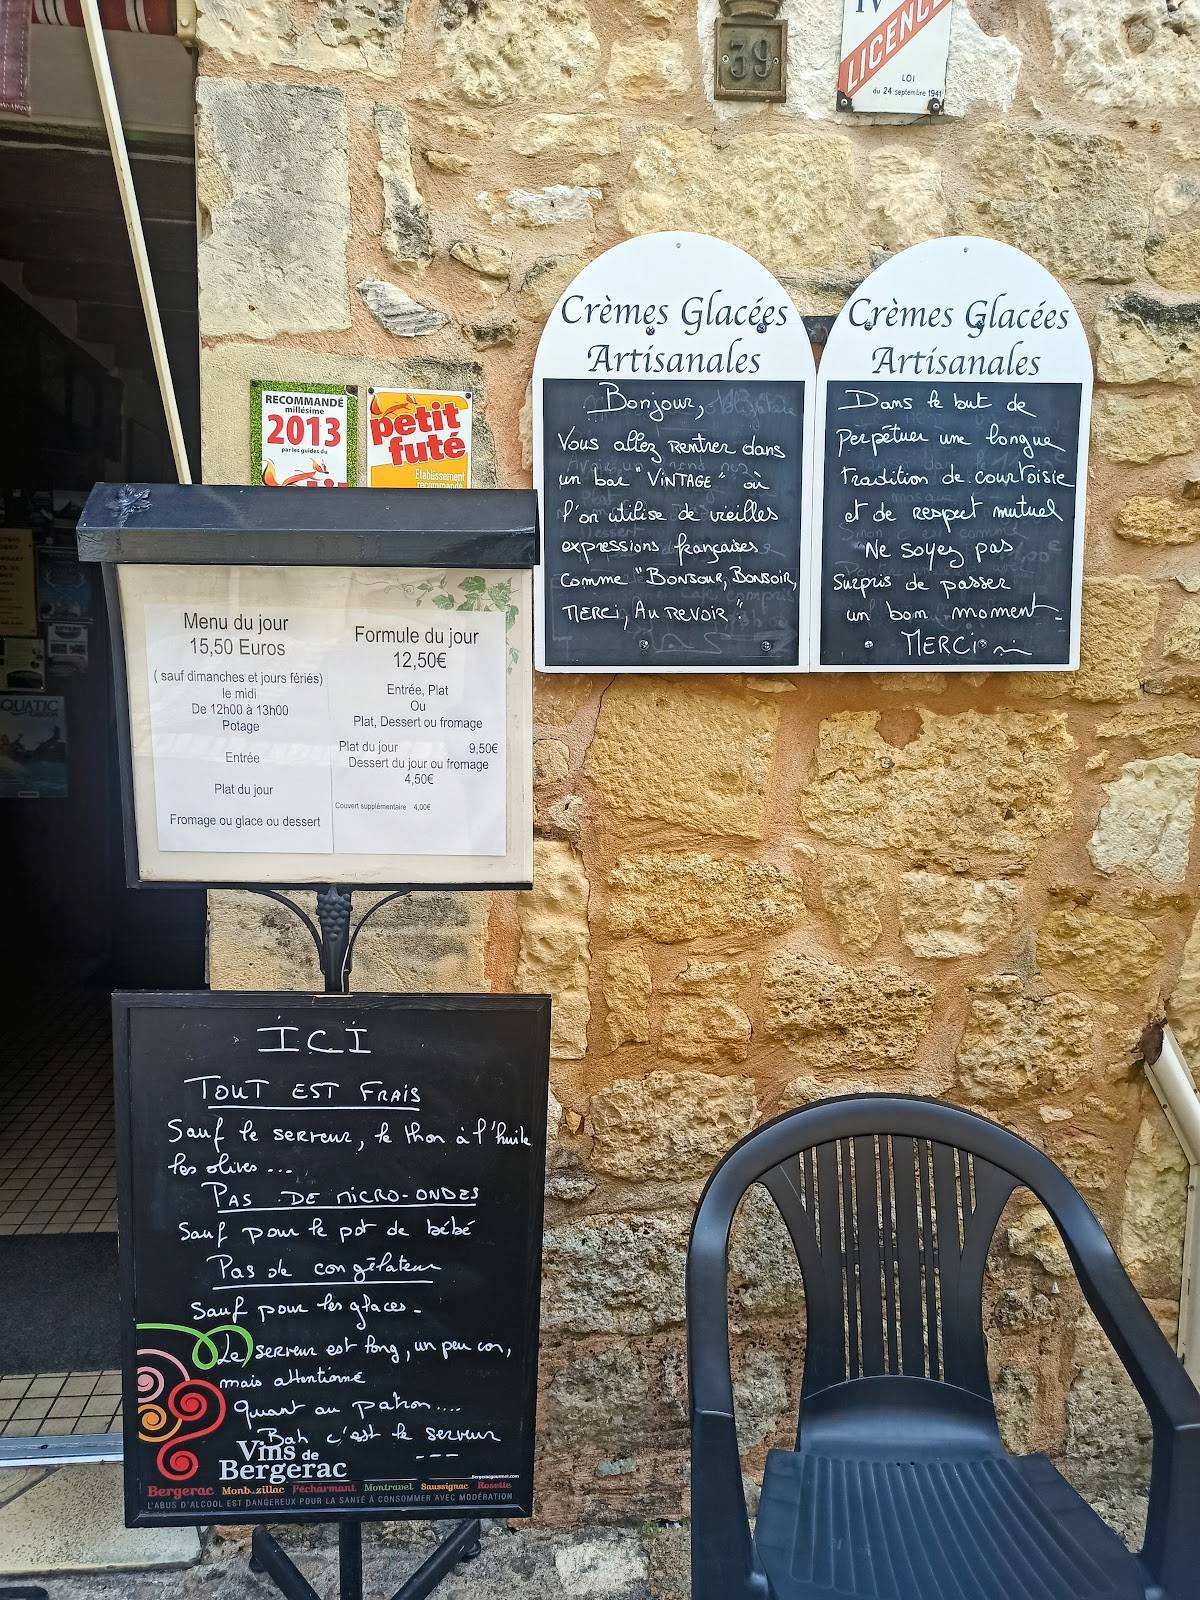 39
IV
LICENCE
LOI
du 24 septembre 1941
Crèmes Glacées
Artisanales
Bonjour,
Vous allez rentrer dans
un bar "VINTAGE" où
l'on utilise de vieilles
expressions françaises
comme "BONJOUR, BONSOIR,
MERCI, AU REVOIR".
Crèmes Glacées
Artisanales
Dans le but de
perpétuer une longue
tradition de courtoisie
et de respect mutuel
Ne soyez pas
surpris de passer
un bon moment.
MERCI
RECOMMANDÉ
millésime
2013
par les guides du
petit
futé
Etablissement
recommandé
Menu du jour
15,50 Euros
( sauf dimanches et jours fériés)
le midi
De 12h00 à 13h00
Potage
Entrée
Plat du jour
Fromage ou glace ou dessert
Formule du jour
12,50€
Entrée, Plat
Ou
Plat, Dessert ou fromage
Plat du jour 9,50€
Dessert du jour ou fromage
4,50€
Couvert supplémentaire 4,00€
QUATIC
ICI
TOUT EST FRAIS
Sauf le serveur, le thon à l'huile
les olives...
PAS DE MICRO-ONDES
Sauf pour le pot de bébé
Pas de congélateur
Sauf pour les glaces.
Le serveur est long, un peu con,
mais attentionné
Quant au patron....
Bah c'est le serveur
---
Vins de
Bergerac
Bergeracgourmet.com
Bergerac Monbazillac Pécharmant Montravel Saussignac Rosette
L'ABUS D'ALCOOL EST DANGEREUX POUR LA SANTÉ À CONSOMMER AVEC MODÉRATION